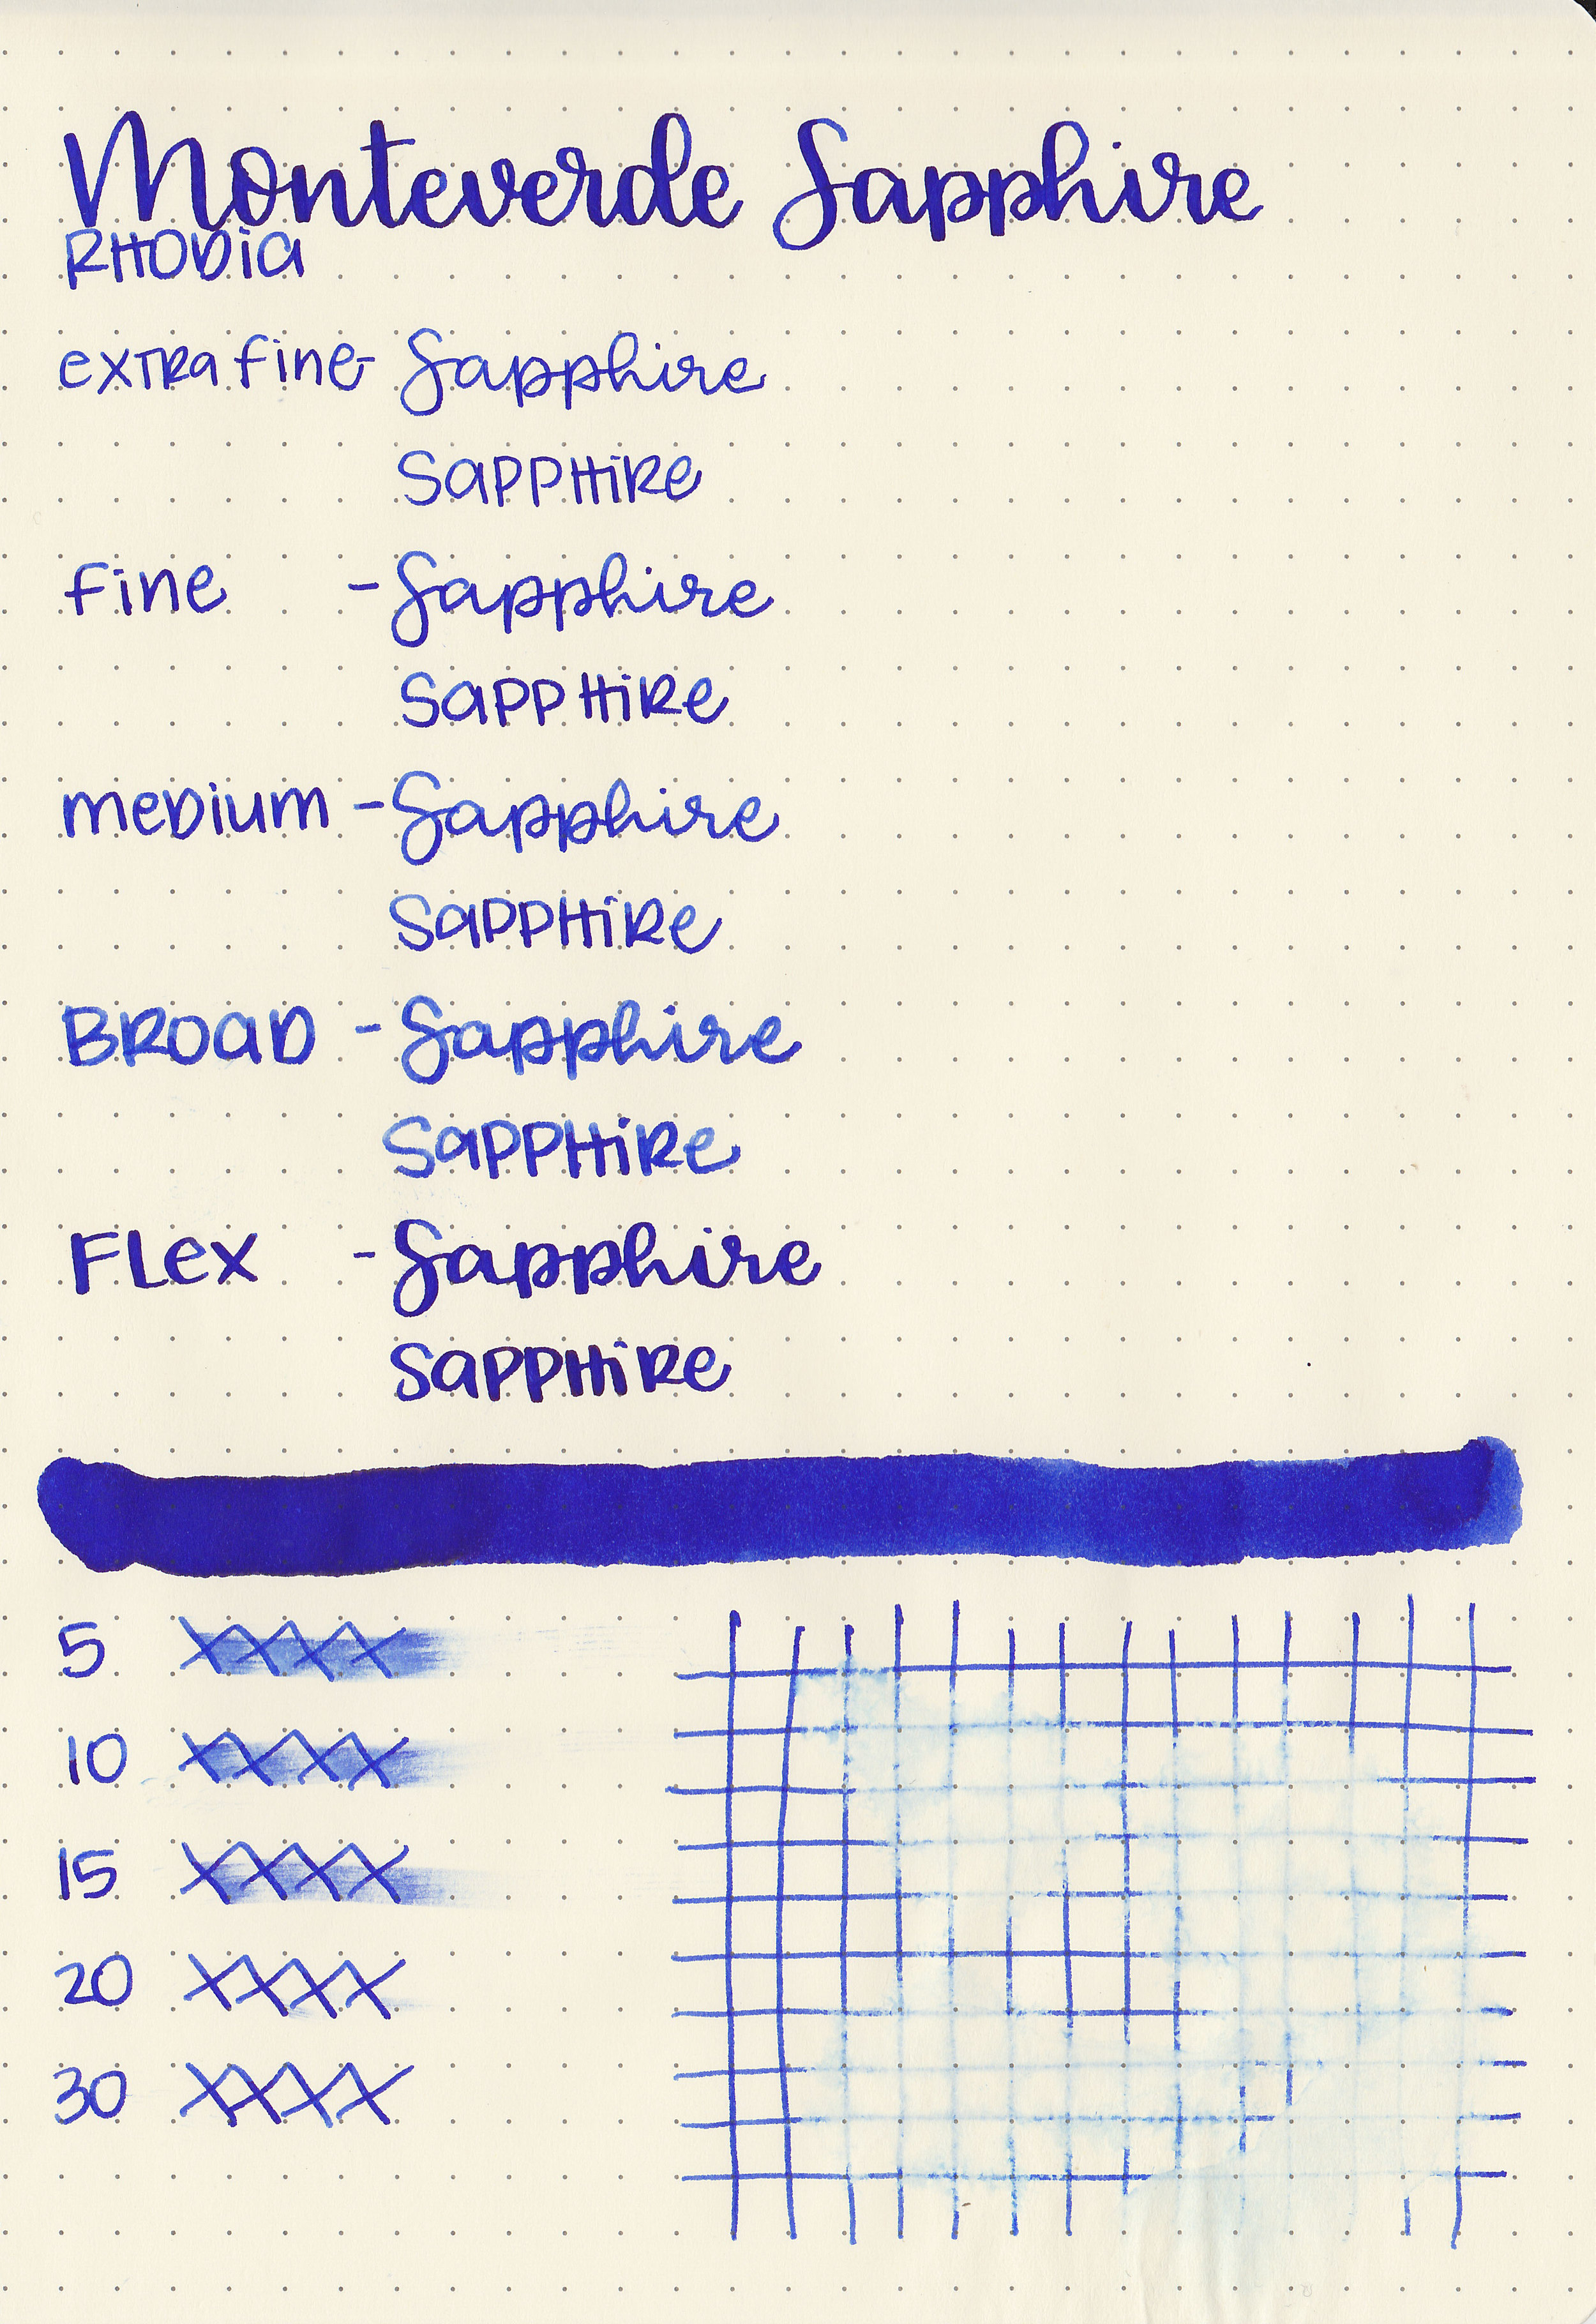 Monteverde Sapphire
RHODIA
extra fine - Sapphire
SAPPHIRE
fine - Sapphire
SAPPHIRE
medium - Sapphire
SAPPHIRE
BROAD - Sapphire
SAPPHIRE
FLex - Sapphire
SAPPHIRE
5 XXXX
10 XXXX
15 XXXX
20 XXXX
30 XXXX